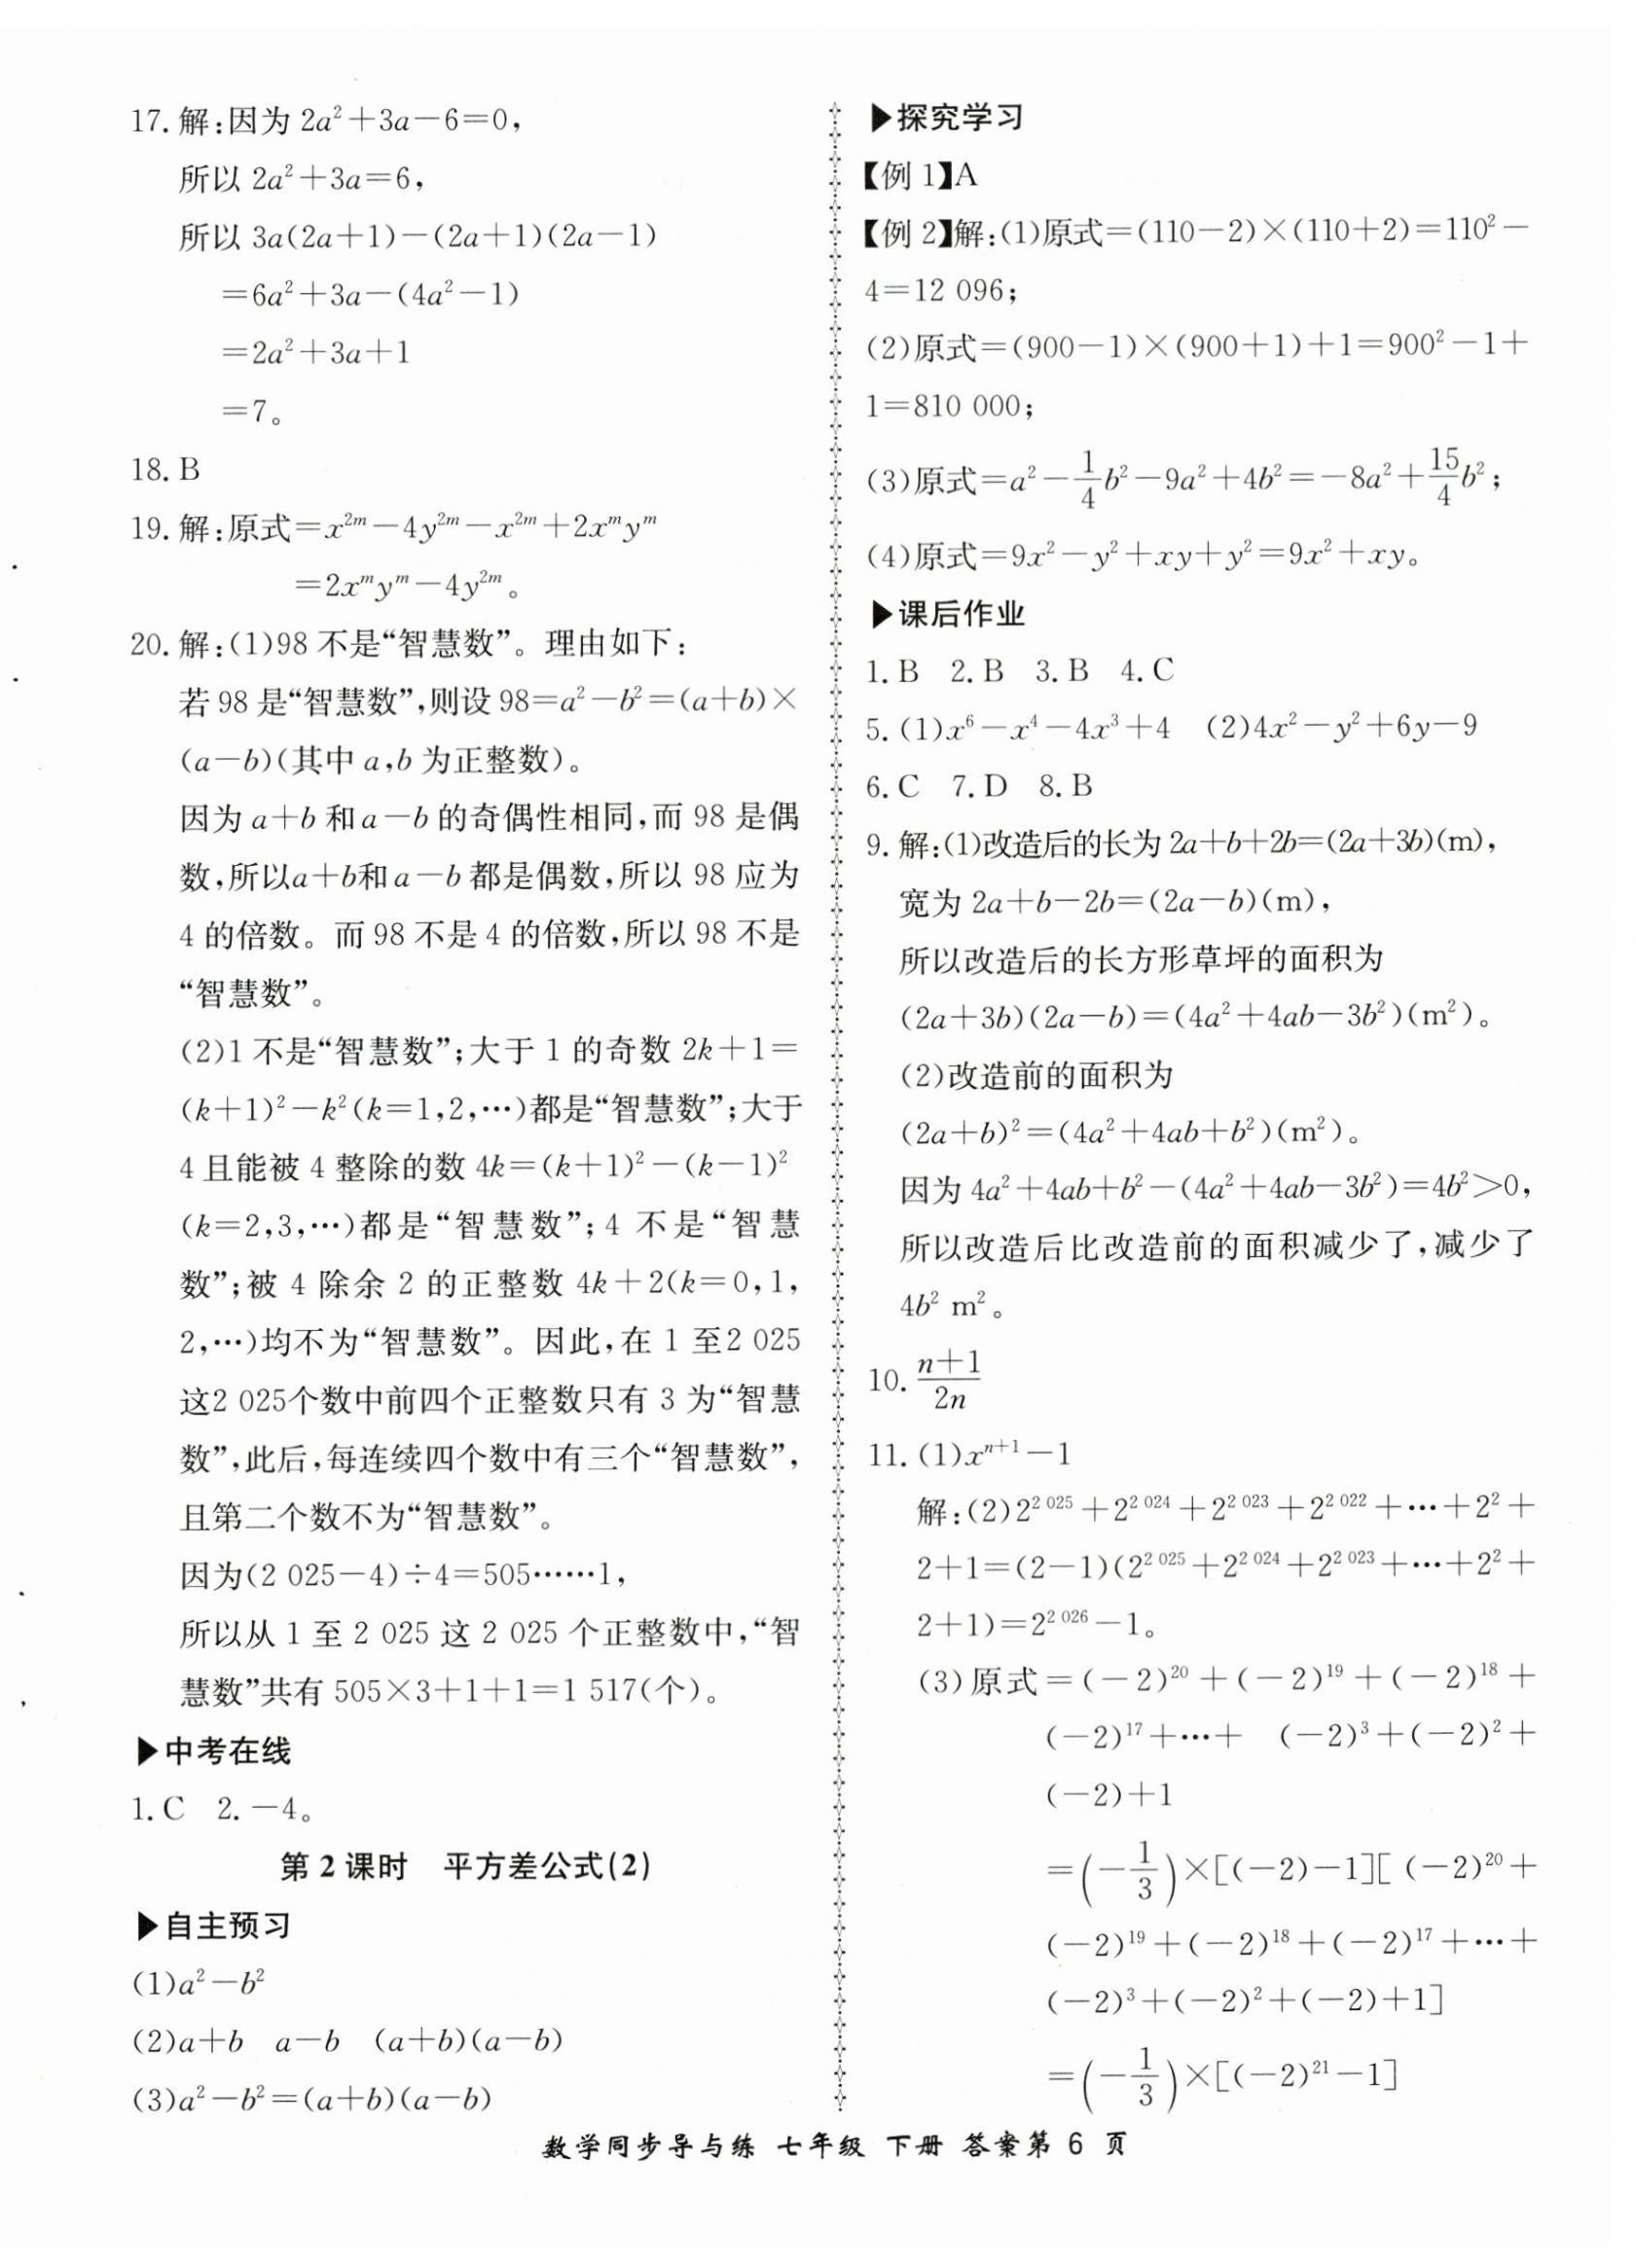 17. 解:因为 2a²+3a-6=0,
所以 2a²+3a=6,
所以 3a(2a+1)-(2a+1)(2a-1)
=6a²+3a-(4a²-1)
=2a²+3a+1
=7。
18. B
19. 解:原式=x^{2m}-4y^{2m}-x^{2m}+2x^m y^m
=2x^m y^m-4y^{2m}。
20. 解:(1)98 不是“智慧数”。理由如下:
若 98 是“智慧数”,则设 98=a²-b²=(a+b)×
(a-b)(其中 a,b 为正整数)。
因为 a+b 和 a-b 的奇偶性相同,而 98 是偶
数,所以a+b和 a-b 都是偶数,所以 98 应为
4 的倍数。而 98 不是 4 的倍数,所以 98 不是
“智慧数”。
(2)1 不是“智慧数”;大于 1 的奇数 2k+1=
(k+1)²-k²(k=1,2,…)都是“智慧数”;大于
4 且能被 4 整除的数 4k=(k+1)²-(k-1)²
(k=2,3,…)都是“智慧数”;4 不是“智慧
数”;被 4 除余 2 的正整数 4k+2(k=0,1,
2,…)均不为“智慧数”。因此,在 1 至2 025
这2 025个数中前四个正整数只有 3 为“智慧
数”,此后,每连续四个数中有三个“智慧数”,
且第二个数不为“智慧数”。
因为(2 025-4)÷4=505……1,
所以从 1 至 2 025 这 2 025 个正整数中,“智
慧数”共有 505×3+1+1=1 517(个)。
▶中考在线
1. C 2. -4。
第 2 课时 平方差公式(2)
▶自主预习
(1)a²-b²
(2)a+b a-b (a+b)(a-b)
(3)a²-b²=(a+b)(a-b)
▶探究学习
【例 1】A
【例 2】解:(1)原式=(110-2)×(110+2)=110²-
4=12 096;
(2)原式=(900-1)×(900+1)+1=900²-1+
1=810 000;
(3)原式=a²-\frac{1}{4}b²-9a²+4b²=-8a²+\frac{15}{4}b²;
(4)原式=9x²-y²+xy+y²=9x²+xy。
▶课后作业
1. B 2. B 3. B 4. C
5. (1)x⁶-x⁴-4x³+4 (2)4x²-y²+6y-9
6. C 7. D 8. B
9. 解:(1)改造后的长为 2a+b+2b=(2a+3b)(m),
宽为 2a+b-2b=(2a-b)(m),
所以改造后的长方形草坪的面积为
(2a+3b)(2a-b)=(4a²+4ab-3b²)(m²)。
(2)改造前的面积为
(2a+b)²=(4a²+4ab+b²)(m²)。
因为 4a²+4ab+b²-(4a²+4ab-3b²)=4b²>0,
所以改造后比改造前的面积减少了,减少了
4b² m²。
10. \frac{n+1}{2n}
11. (1)x^{n+1}-1
解:(2)2^{2 025}+2^{2 024}+2^{2 023}+2^{2 022}+…+2²+
2+1=(2-1)(2^{2 025}+2^{2 024}+2^{2 023}+…+2²+
2+1)=2^{2 026}-1。
(3)原式=(-2)^{20}+(-2)^{19}+(-2)^{18}+
(-2)^{17}+…+ (-2)³+(-2)²+
(-2)+1
=(-\frac{1}{3})×[(-2)-1][(-2)^{20}+
(-2)^{19}+(-2)^{18}+(-2)^{17}+…+
(-2)³+(-2)²+(-2)+1]
=(-\frac{1}{3})×[(-2)^{21}-1]
数学同步导与练 七年级 下册 答案第 6 页